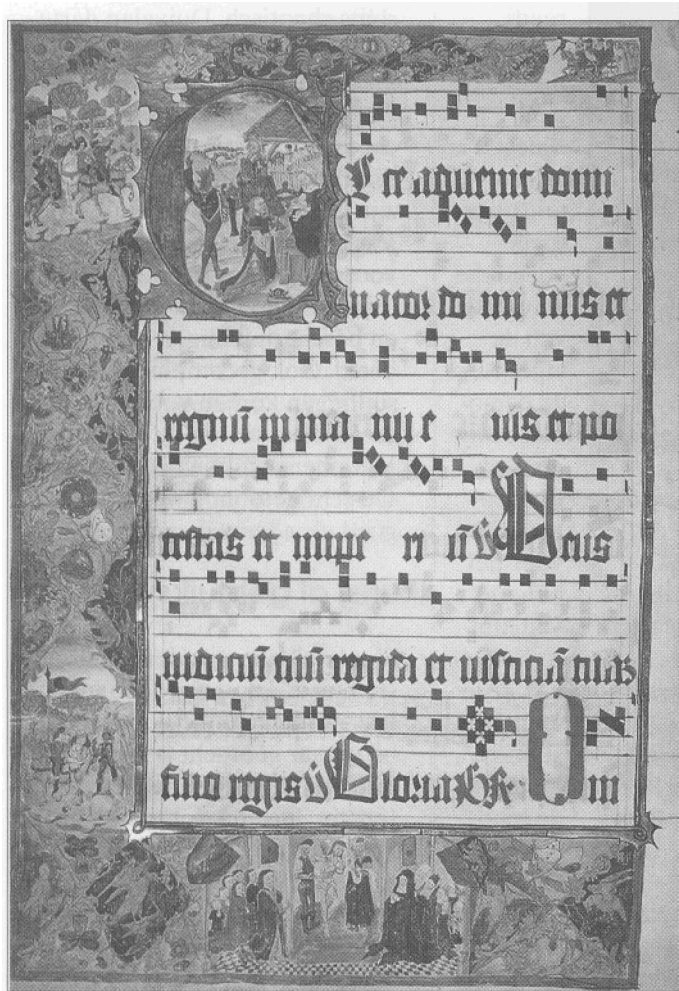 Ecce aduenit domi
nator do mi nus et
regnū in ma nu e ius et po
testas et impe ri ū V Deus
iudiciū tuū regi da et iusticiā tuā
filio regis V Gloria PR Om